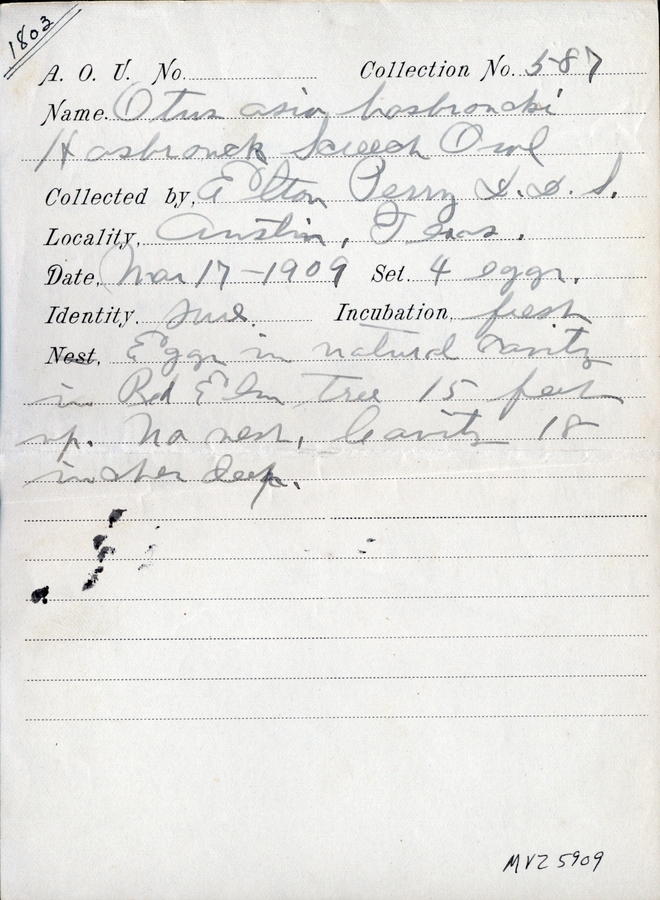 1803
A. O. U. No. Collection No. 587
Name. Otus asio hasbroucki
Hasbrouck Screech Owl
Collected by, Elton Perry D.D.S.
Locality, Austin, Texas.
Date, Mar 17-1909 Set. 4 eggs.
Identity, sure. Incubation, fresh
Nest, Eggs in natural cavity
in Red Elm Tree 15 feet
up. No nest, Cavity 18
inches deep.
MVZ 5909